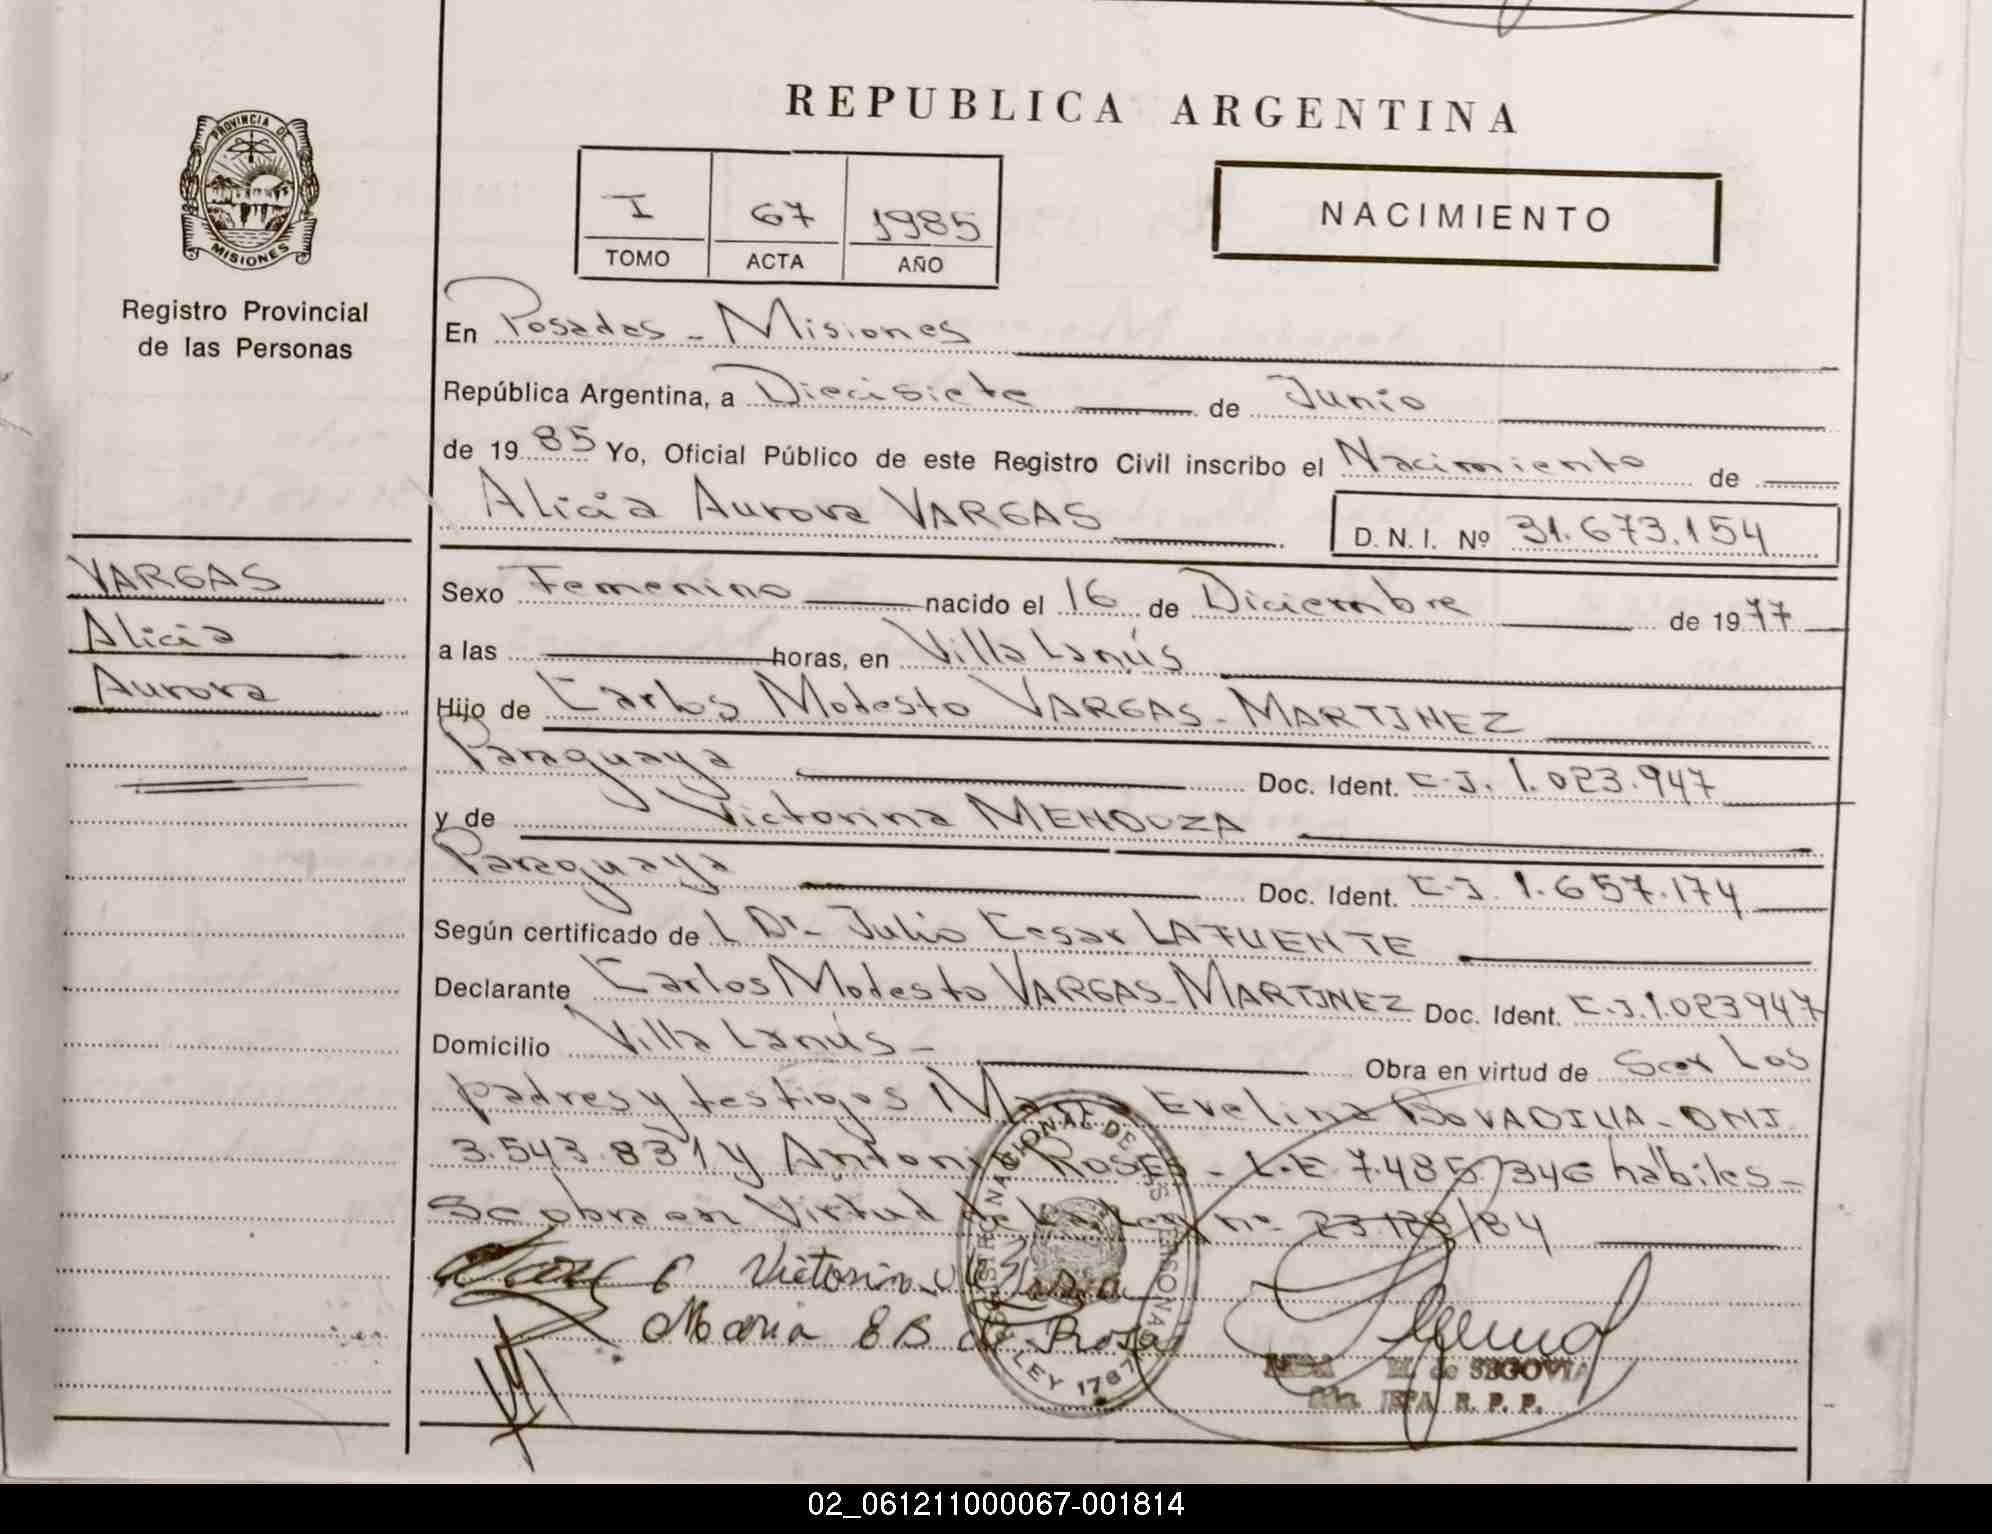 REPUBLICA ARGENTINA
PROVINCIA DE
MISIONES
Registro Provincial
de las Personas
I 67 1985
TOMO ACTA AÑO
NACIMIENTO
En Posadas - Misiones
República Argentina, a Diecisiete de Junio
de 1985 Yo, Oficial Público de este Registro Civil inscribo el Nacimiento de
Alicia Aurora VARGAS
D. N. I. Nº 31.673.154
VARGAS
Alicia
Aurora
Sexo Femenino nacido el 16 de Diciembre de 1977
a las horas, en Villa Lanús
Hijo de Carlos Modesto VARGAS-MARTINEZ
Paraguaya Doc. Ident. C.I. 1.023.947
y de Victorina MENDOZA
Paraguaya Doc. Ident. C.I. 1.657.174
Según certificado de L Dr. Julio Cesar LAFUENTE
Declarante Carlos Modesto VARGAS-MARTINEZ Doc. Ident. C.I. 1.023947
Domicilio Villa Lanús - Obra en virtud de Ser Los
padres y testigos Evelina BOVADILLA - DNI
3.543.831 y Antonio ROSES - L.E 7.485.346 hábiles -
Se obra en Virtud de la Ley nº 23.128/84
Victorina
Maria E B de Rosa
REGISTRO NACIONAL DE LAS PERSONAS
LEY
M. de SEGOVIA
R. P. P.
02_061211000067-001814